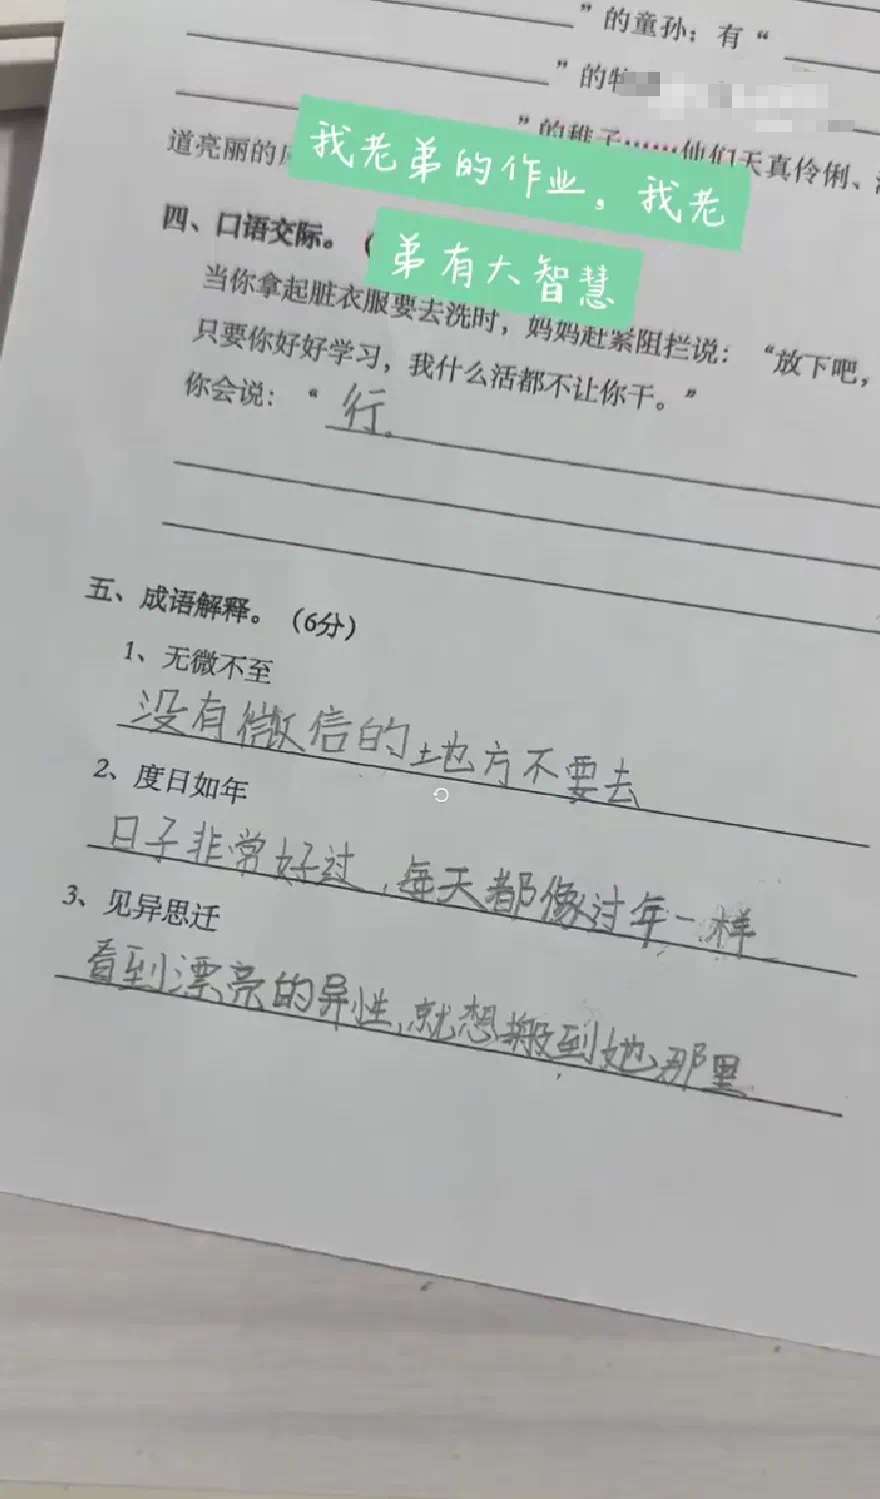 ”的童孙；有“
”的
”的稚子……他们天真伶俐、
道亮丽的
我老弟的作业，我老
弟有大智慧
四、口语交际。（
当你拿起脏衣服要去洗时，妈妈赶紧阻拦说：“放下吧，
只要你好好学习，我什么活都不让你干。”
你会说：“行。
五、成语解释。（6分）
1、无微不至
没有微信的地方不要去
2、度日如年
日子非常好过，每天都像过年一样
3、见异思迁
看到漂亮的异性，就想搬到她那里